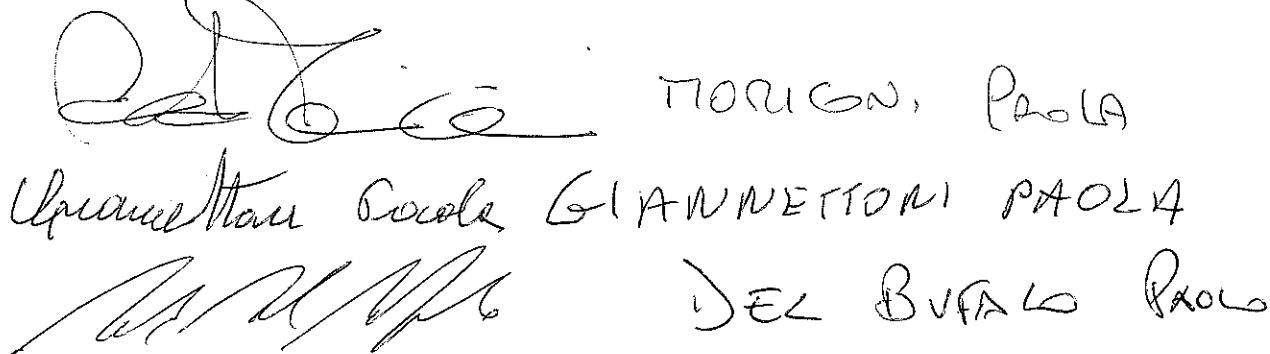 MORIGNI PAOLA
Giannettoni Paola GIANNETTONI PAOLA
DEL BUFALO PAOLO